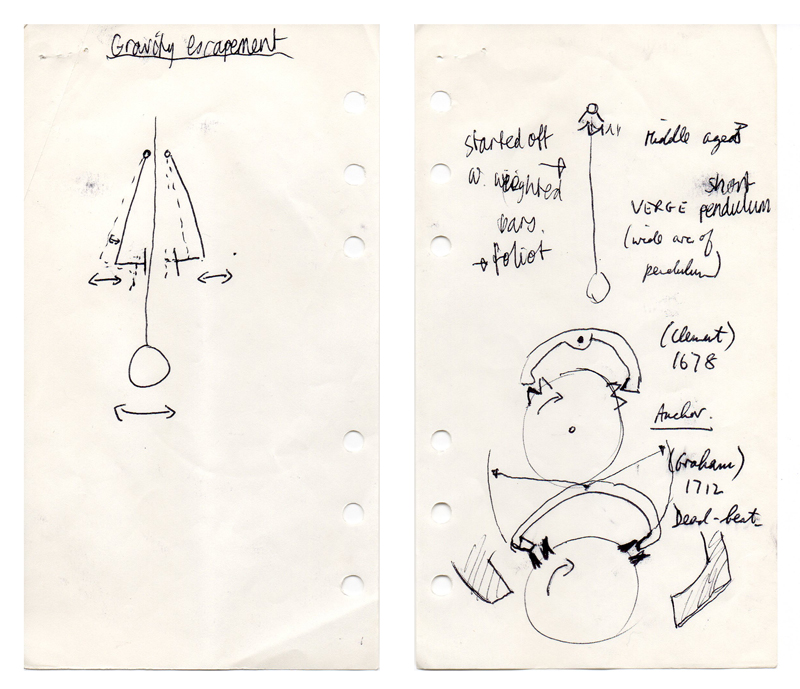 Gravity escapement
started off
w. weighted
bars.
→ foliot
Middle ages
short
VERGE pendulum
(wide arc of
pendulum)
(Clement)
1678
Anchor.
(Graham)
1712
Dead-beat